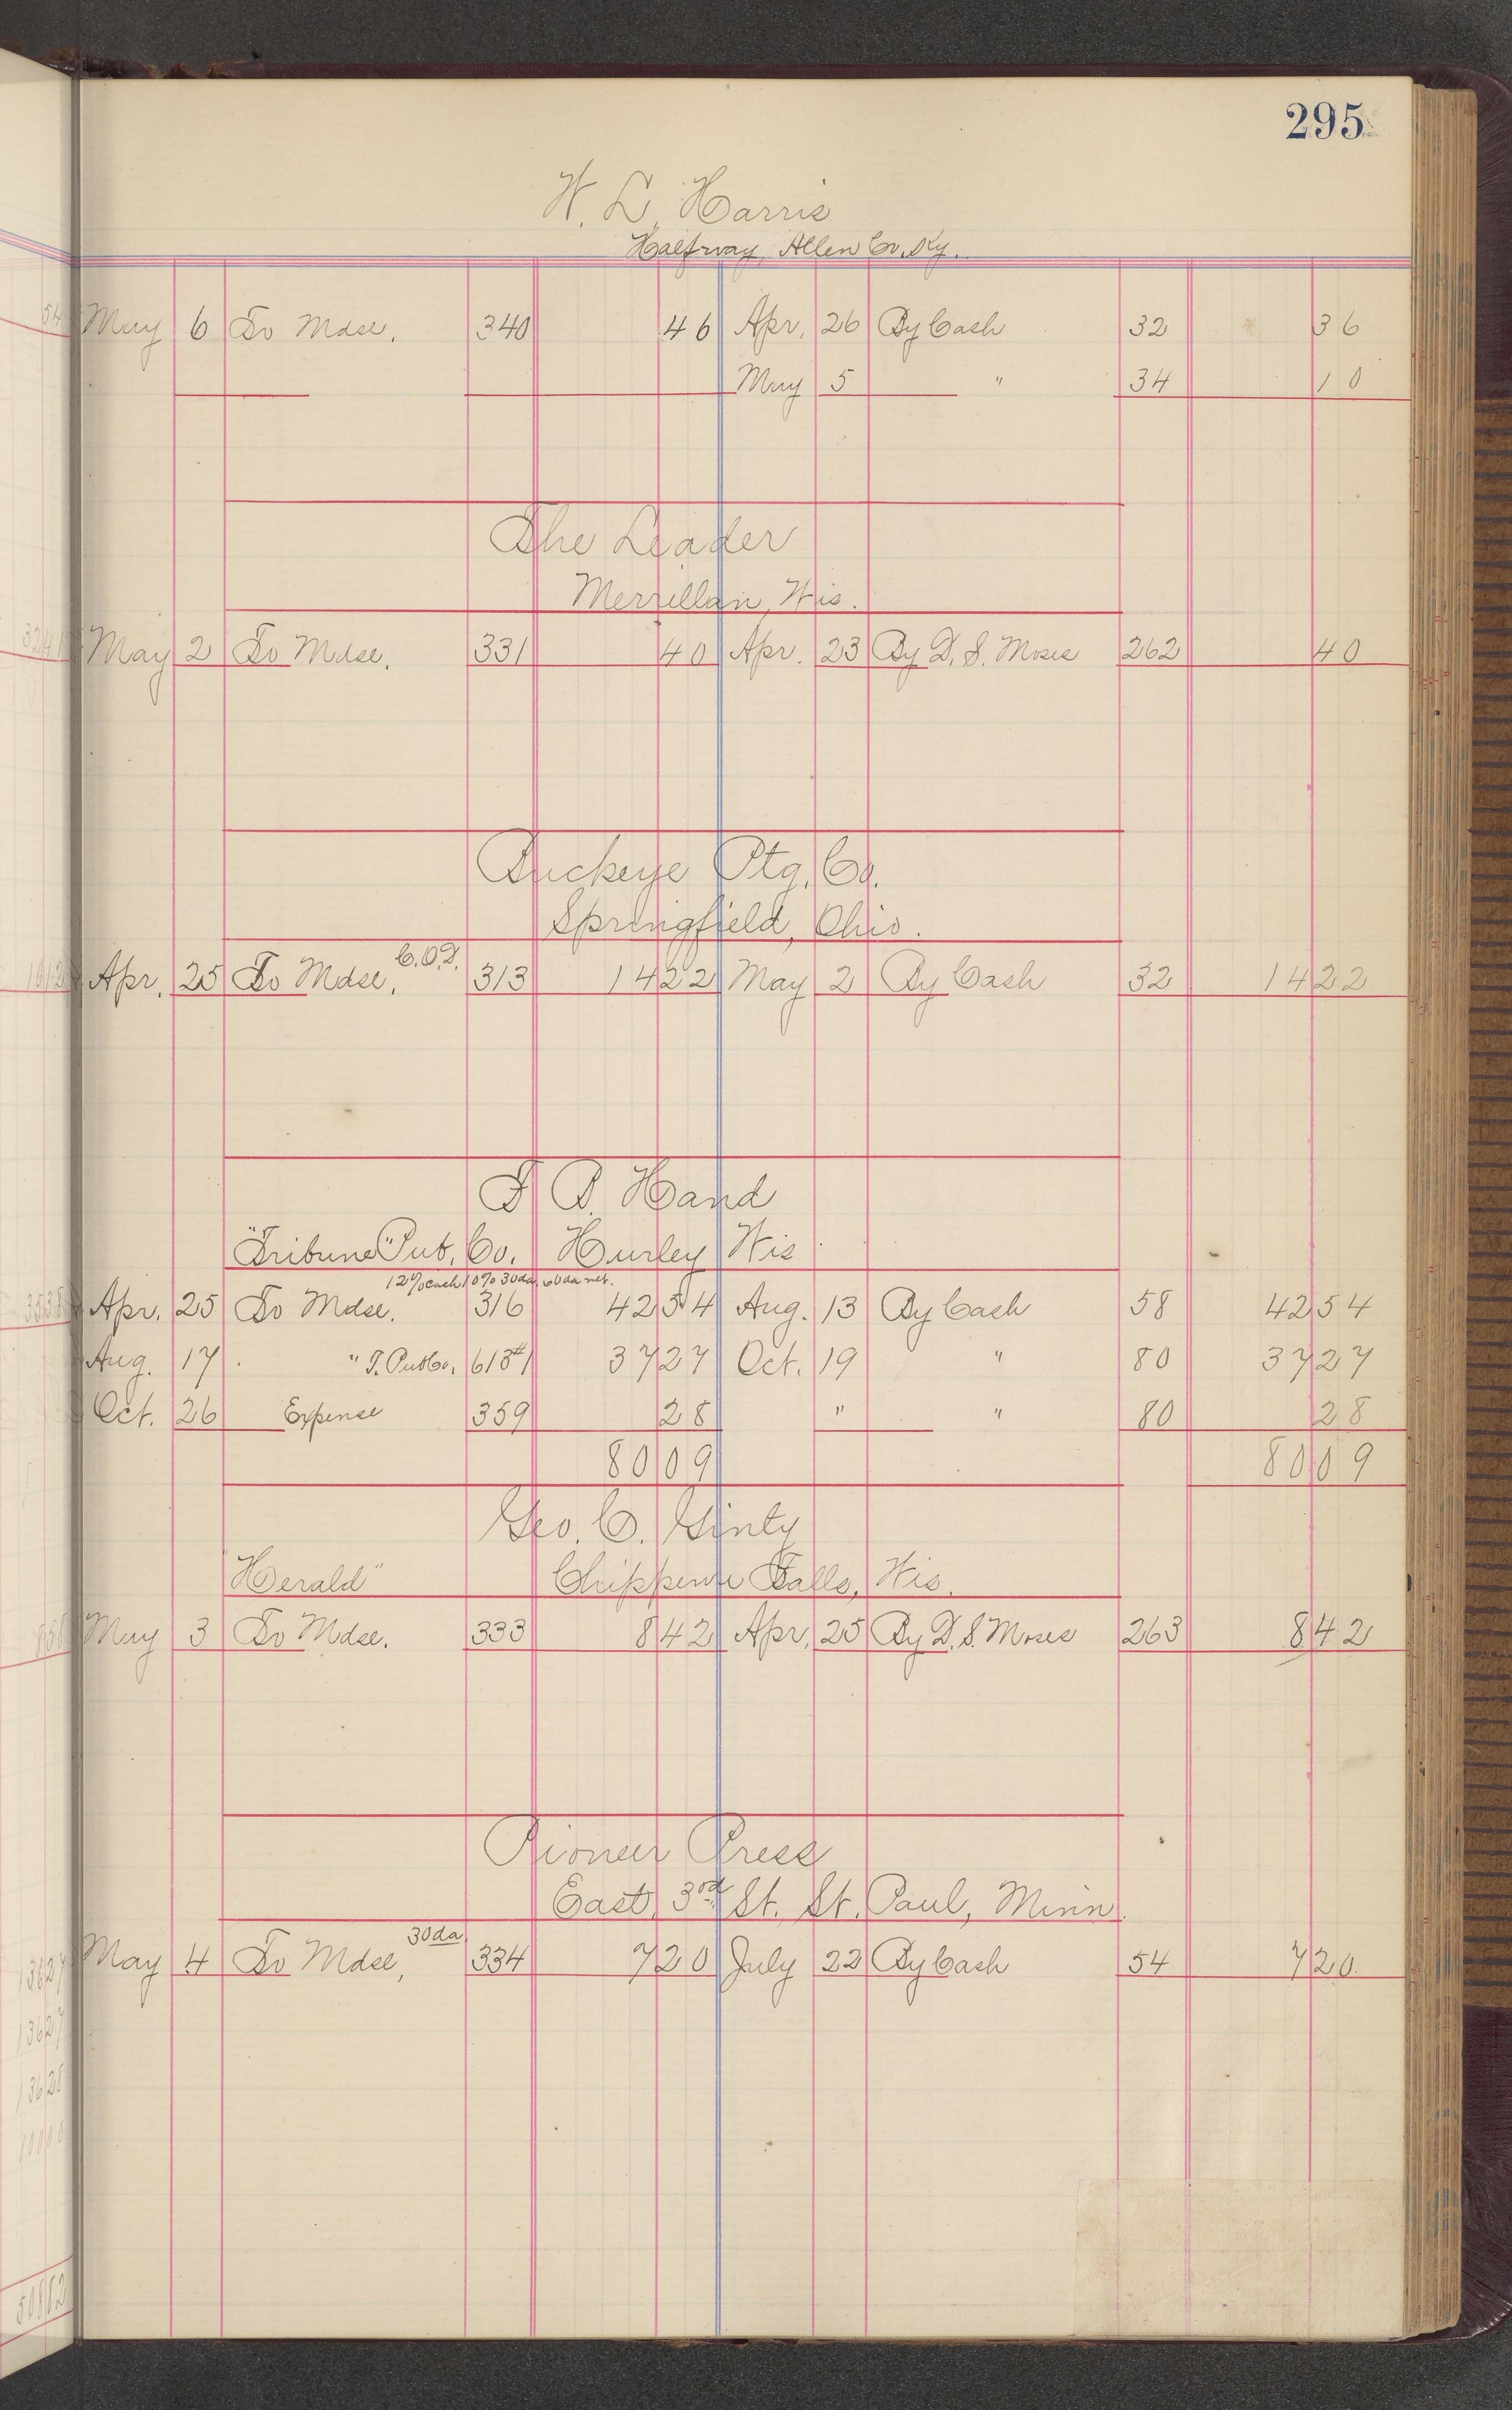 295
W. L. Harris
Halfway, Allen Co. Ky.
May 6 To Mdse. 340 46 Apr. 26 By Cash 32 36
May 5 " 34 10
The Leader
Merrillan, Wis.
May 2 To Mdse. 331 40 Apr. 23 By D. S. Moses 262 40
Buckeye Ptg. Co.
Springfield, Ohio.
Apr. 25 To Mdse, C.O.D. 313 14 22 May 2 By Cash 32 14 22
Hand
"Tribune" Pub. Co. Hurley Wis
12% cash 10% 30da. 60da net.
Apr. 25 To Mdse. 316 42 54 Aug. 13 By Cash 58 42 54
Aug. 17 " T. Pub Co. 37 27 Oct. 19 " 80 37 27
Oct. 26 Expense 359 28 " " 80 28
80 09 80 09
Geo. C. Ginty
"Herald" Chippewa Falls, Wis.
May 3 To Mdse. 333 8 42 Apr. 25 By D. S. Moses 263 8 42
Pioneer Press
East 3rd St. St. Paul, Minn.
May 4 To Mdse, 30da 334 7 20 July 22 By Cash 54 7 20